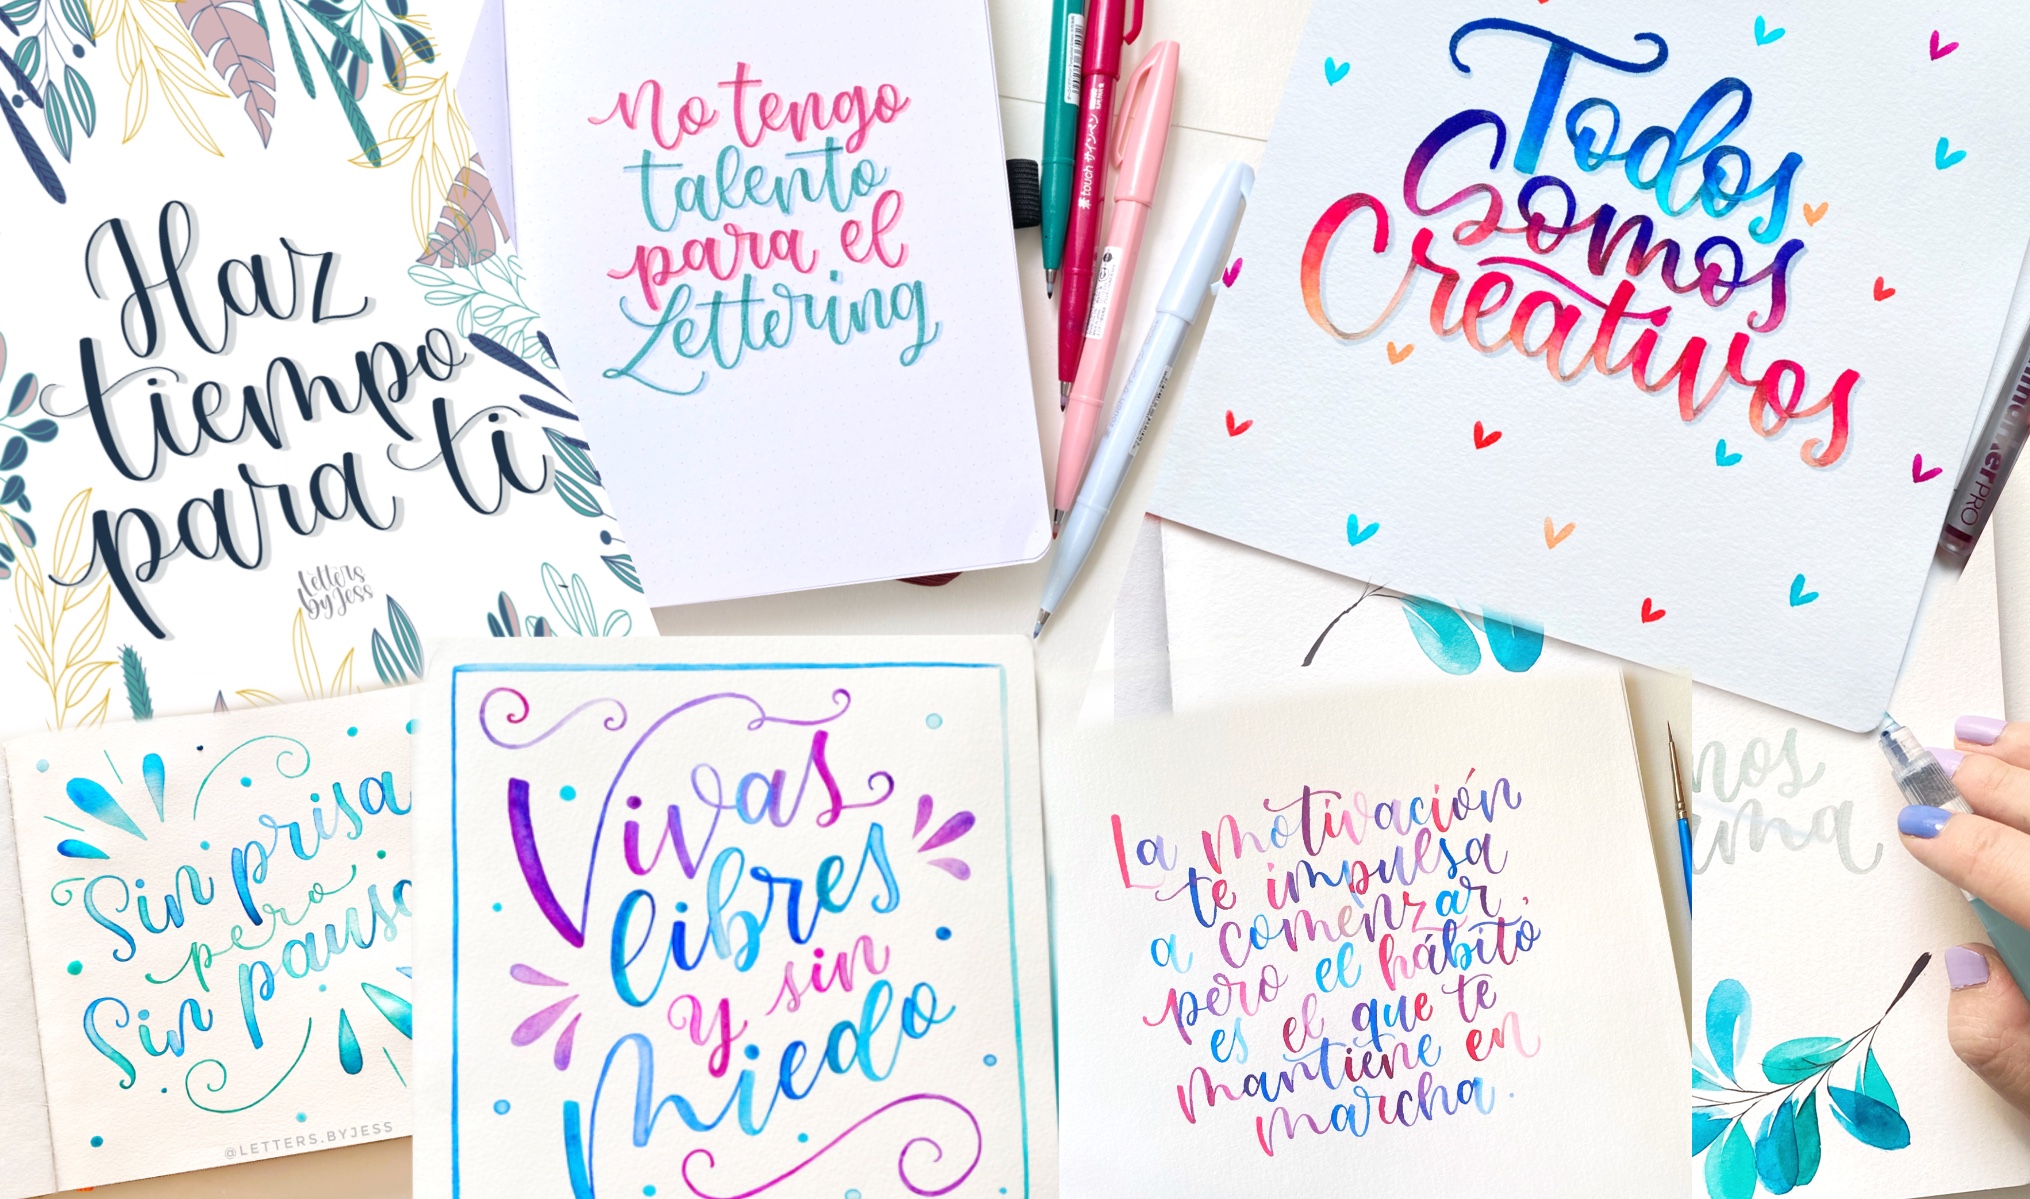 Haz
tiempo
para ti
Letters
by Jess
No tengo
talento
para el
Lettering
touch サインペン
Todos
Somos
Creativos
PRO
Sin prisa
pero
Sin pausa
@LETTERS.BYJESS
Vivas
libres
y sin
Miedo
La motivación
te impulsa
a comenzar,
pero el hábito
es el que te
mantiene en
marcha.